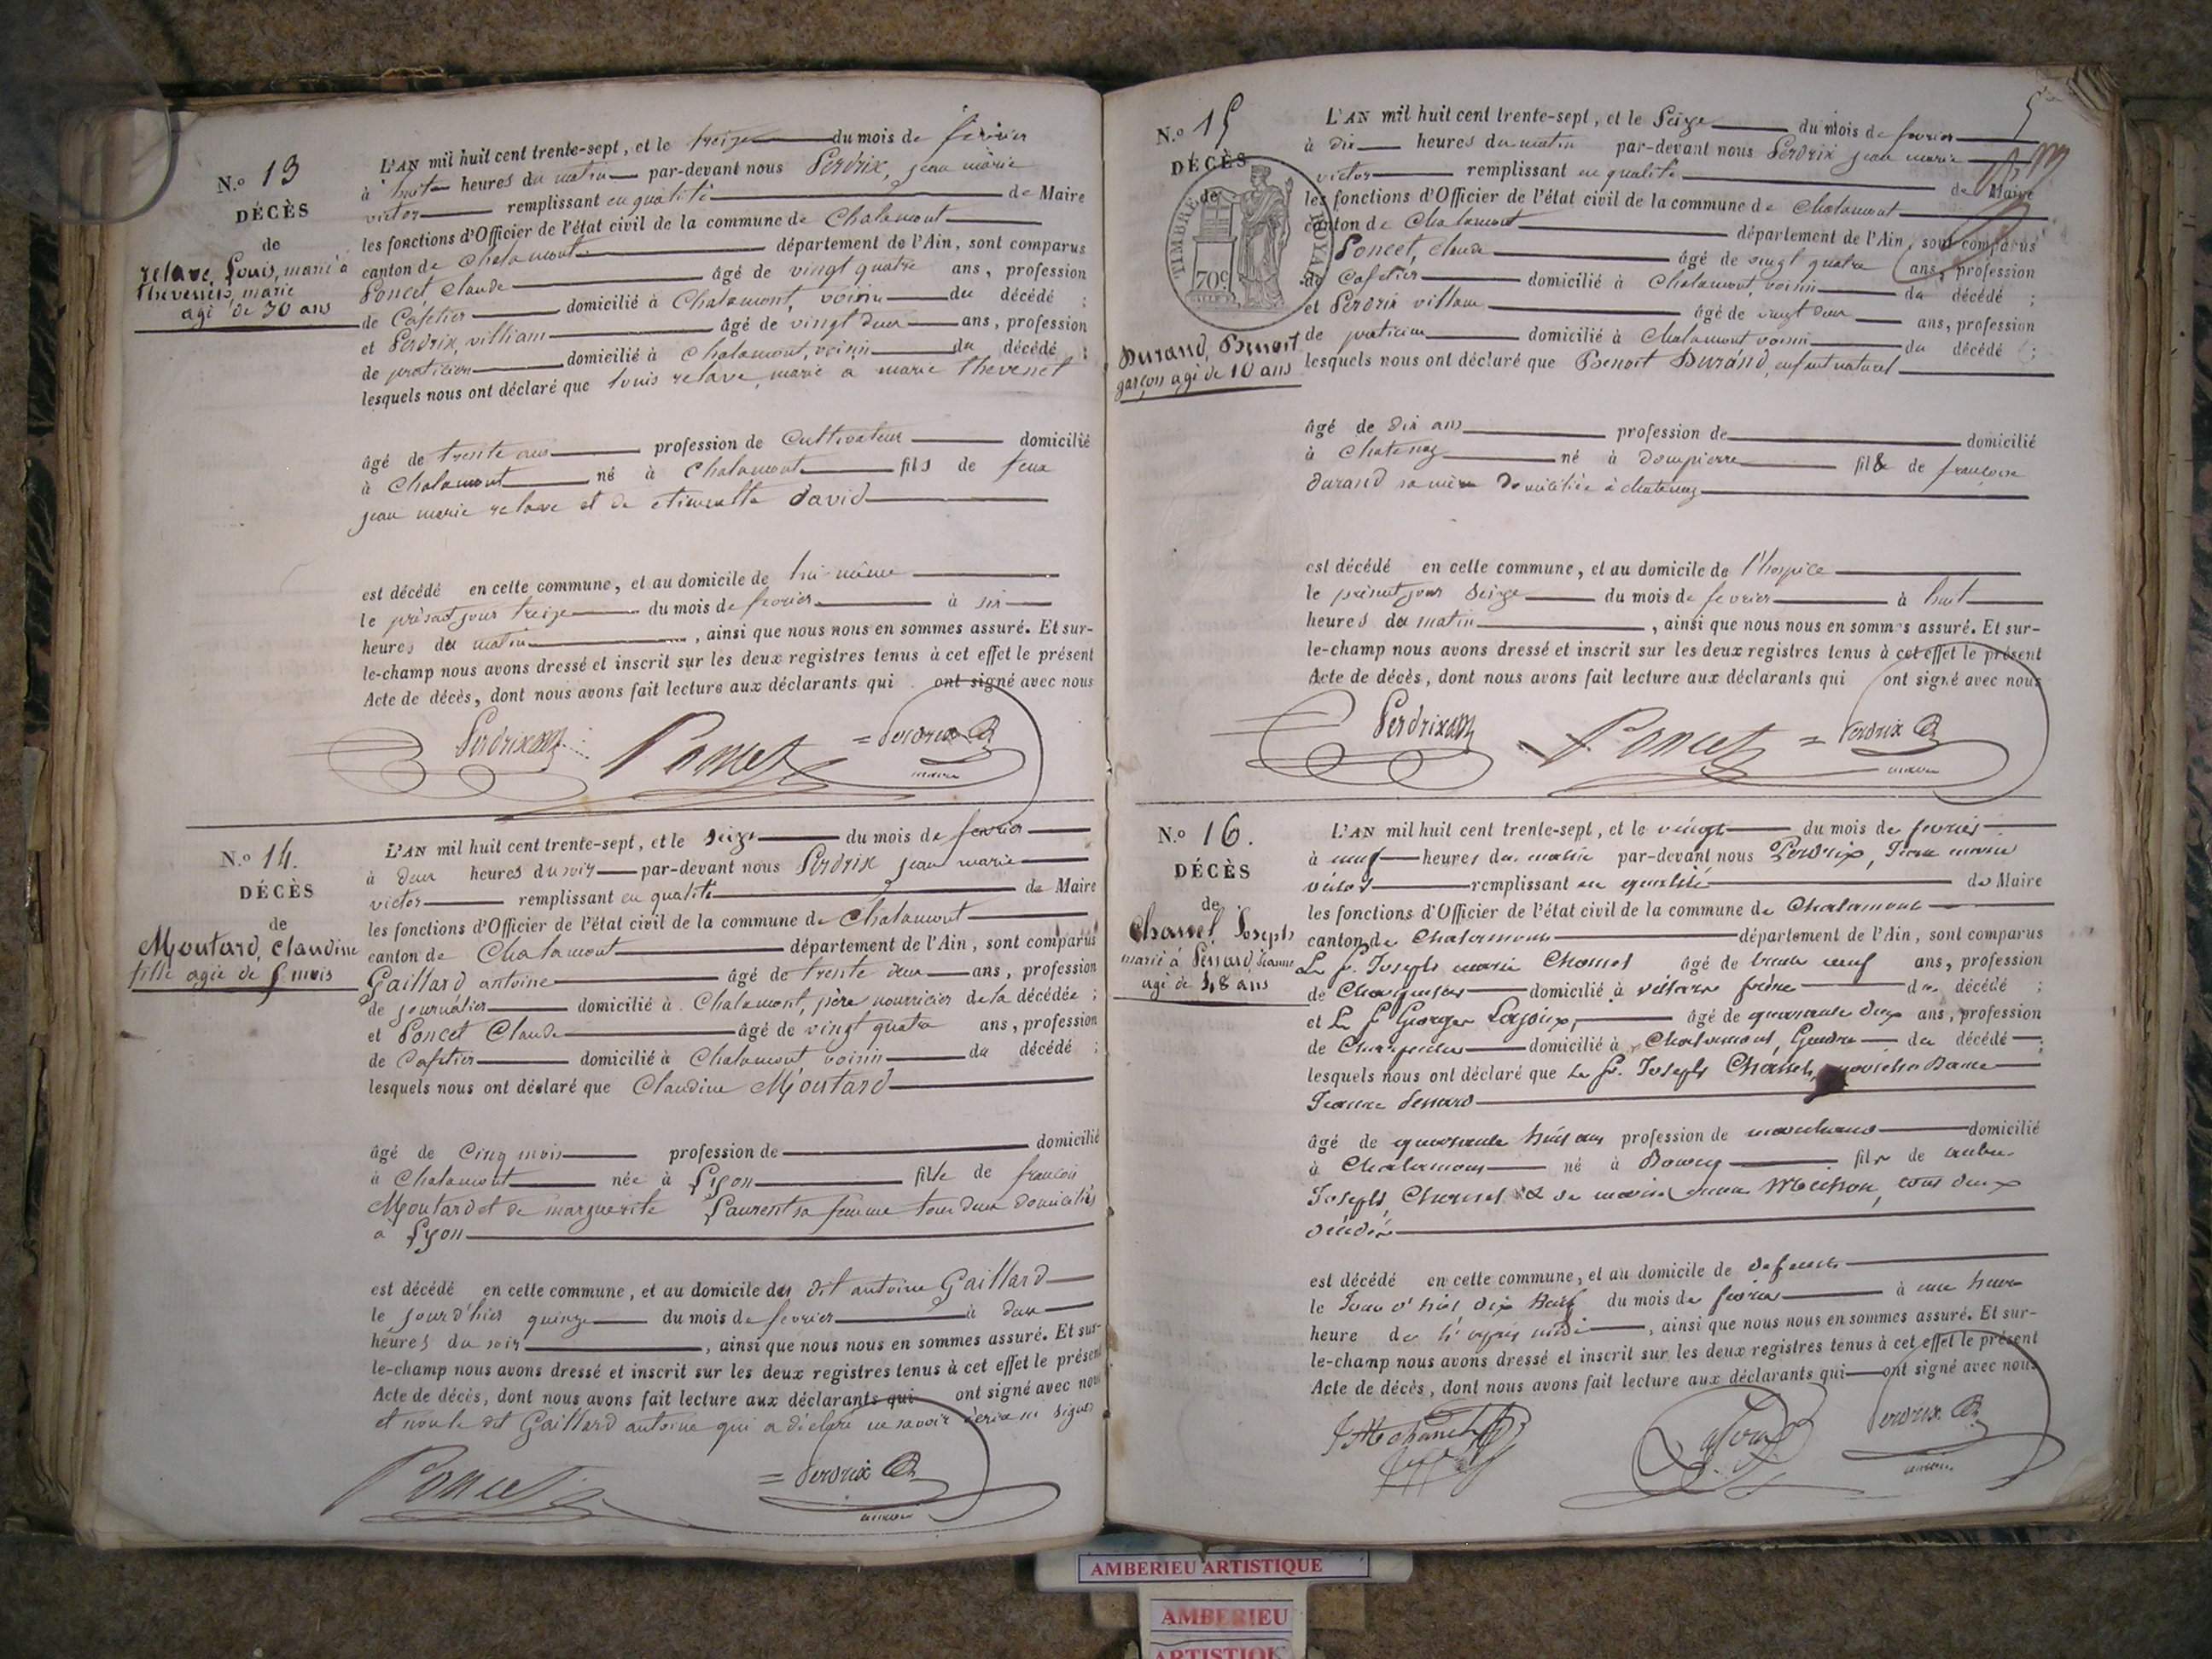 N.o 13
DÉCÈS
de
relave, Louis, marié à
thevenet, marie
agé de 30 ans
L'AN mil huit cent trente-sept, et le treize du mois de fevrier
à huit heures du matin par-devant nous Perdrix, jean marie
victor remplissant en qualité de Maire
les fonctions d'Officier de l'état civil de la commune de Chalamont
canton de Chalamont département de l'Ain, sont comparus
Poncet Claude âgé de vingt quatre ans, profession
de Cafetier domicilié à Chalamont, voisin du décédé ;
et Perdrix, villiam âgé de vingt deux ans, profession
de praticien domicilié à Chalamont, voisin du décédé ;
lesquels nous ont déclaré que louis relave, marié a marie thevenet
âgé de trente ans profession de Cultivateur domicilié
à Chalamont né à Chalamont fils de feux
jean marie relave et de etiennette david
est décédé en cette commune, et au domicile de lui-même
le présent jour treize du mois de fevrier à six
heures du matin, ainsi que nous nous en sommes assuré. Et sur-
le-champ nous avons dressé et inscrit sur les deux registres tenus à cet effet le présent
Acte de décès, dont nous avons fait lecture aux déclarants qui ont signé avec nous
Perdrix Poncet = Perdrix
maire
N.o 14.
DÉCÈS
de
Moutard, Claudine
fille agée de 5 mois
L'AN mil huit cent trente-sept, et le seize du mois de fevrier
à deux heures du soir par-devant nous Perdrix jean marie
victor remplissant en qualité de Maire
les fonctions d'Officier de l'état civil de la commune de Chalamont
canton de Chalamont département de l'Ain, sont comparus
Gaillard antoine âgé de trente deux ans, profession
de journalier domicilié à Chalamont, père nourricier de la décédée ;
et Poncet Claude âgé de vingt quatre ans, profession
de Cafetier domicilié à Chalamont voisin du décédé ;
lesquels nous ont déclaré que Claudine Moutard
âgé de Cinq mois profession de domicilié
à Chalamont née à Lyon fille de françois
Moutard et de marguerite Laurent sa femme tous deux domiciliés
a Lyon
est décédé en cette commune, et au domicile du dit antoine Gaillard
le jour d'hier quinze du mois de fevrier à deux
heures du soir, ainsi que nous nous en sommes assuré. Et sur-
le-champ nous avons dressé et inscrit sur les deux registres tenus à cet effet le présent
Acte de décès, dont nous avons fait lecture aux déclarants qui ont signé avec nous
et non le dit Gaillard antoine qui a déclaré ne savoir écrire ni signer
Poncet = Perdrix
maire
N.o 15
DÉCÈS
de
TIMBRE ROYAL
70c
Durand, Benoit
garçon agé de 10 ans
5
L'AN mil huit cent trente-sept, et le Seize du mois de fevrier
à dix heures du matin par-devant nous Perdrix jean marie
victor remplissant en qualité de Maire
les fonctions d'Officier de l'état civil de la commune de Chalamont
canton de Chalamont département de l'Ain, sont comparus
Poncet, claude âgé de vingt quatre ans, profession
de Cafetier domicilié à Chalamont voisin du décédé ;
et Perdrix villiam âgé de vingt deux ans, profession
de praticien domicilié à Chalamont voisin du décédé ;
lesquels nous ont déclaré que Benoit Durand, enfant naturel
âgé de dix ans profession de domicilié
à Chatenay né à dompierre fils de françoise
durand sa mère domiciliée à chatenay
est décédé en cette commune, et au domicile de l'hospice
le présent jour seize du mois de fevrier à huit
heures du matin, ainsi que nous nous en sommes assuré. Et sur-
le-champ nous avons dressé et inscrit sur les deux registres tenus à cet effet le présent
Acte de décès, dont nous avons fait lecture aux déclarants qui ont signé avec nous
Perdrix Poncet = Perdrix
maire
N.o 16.
DÉCÈS
de
Chanel, Joseph
marié à Jeanne
agé de 48 ans
L'AN mil huit cent trente-sept, et le vingt du mois de fevrier
à neuf heures du matin par-devant nous Perdrix, Jean marie
victor remplissant en qualité de Maire
les fonctions d'Officier de l'état civil de la commune de Chalamont
canton de Chalamont département de l'Ain, sont comparus
Le Sr. Joseph marie Chanel âgé de trente neuf ans, profession
de domicilié à villars frère du décédé ;
et Le Sr Georges Lajoux, âgé de quarante deux ans, profession
de Charpentier domicilié à Chalamont, Gendre du décédé ;
lesquels nous ont déclaré que Le Sr. Joseph Chanel, Dame
Jeanne
âgé de quarante huit ans profession de marchand domicilié
à Chalamont né à Bourg fils de
Joseph Chanel & de marie tous deux
décédés
est décédé en cette commune, et au domicile de
le Jour d'hier dix neuf du mois de fevrier à une heure
heure de l'après midi, ainsi que nous nous en sommes assuré. Et sur-
le-champ nous avons dressé et inscrit sur les deux registres tenus à cet effet le présent
Acte de décès, dont nous avons fait lecture aux déclarants qui ont signé avec nous
JM Chanel Lajoux Perdrix
maire
AMBERIEU ARTISTIQUE
AMBERIEU
ARTISTIQUE